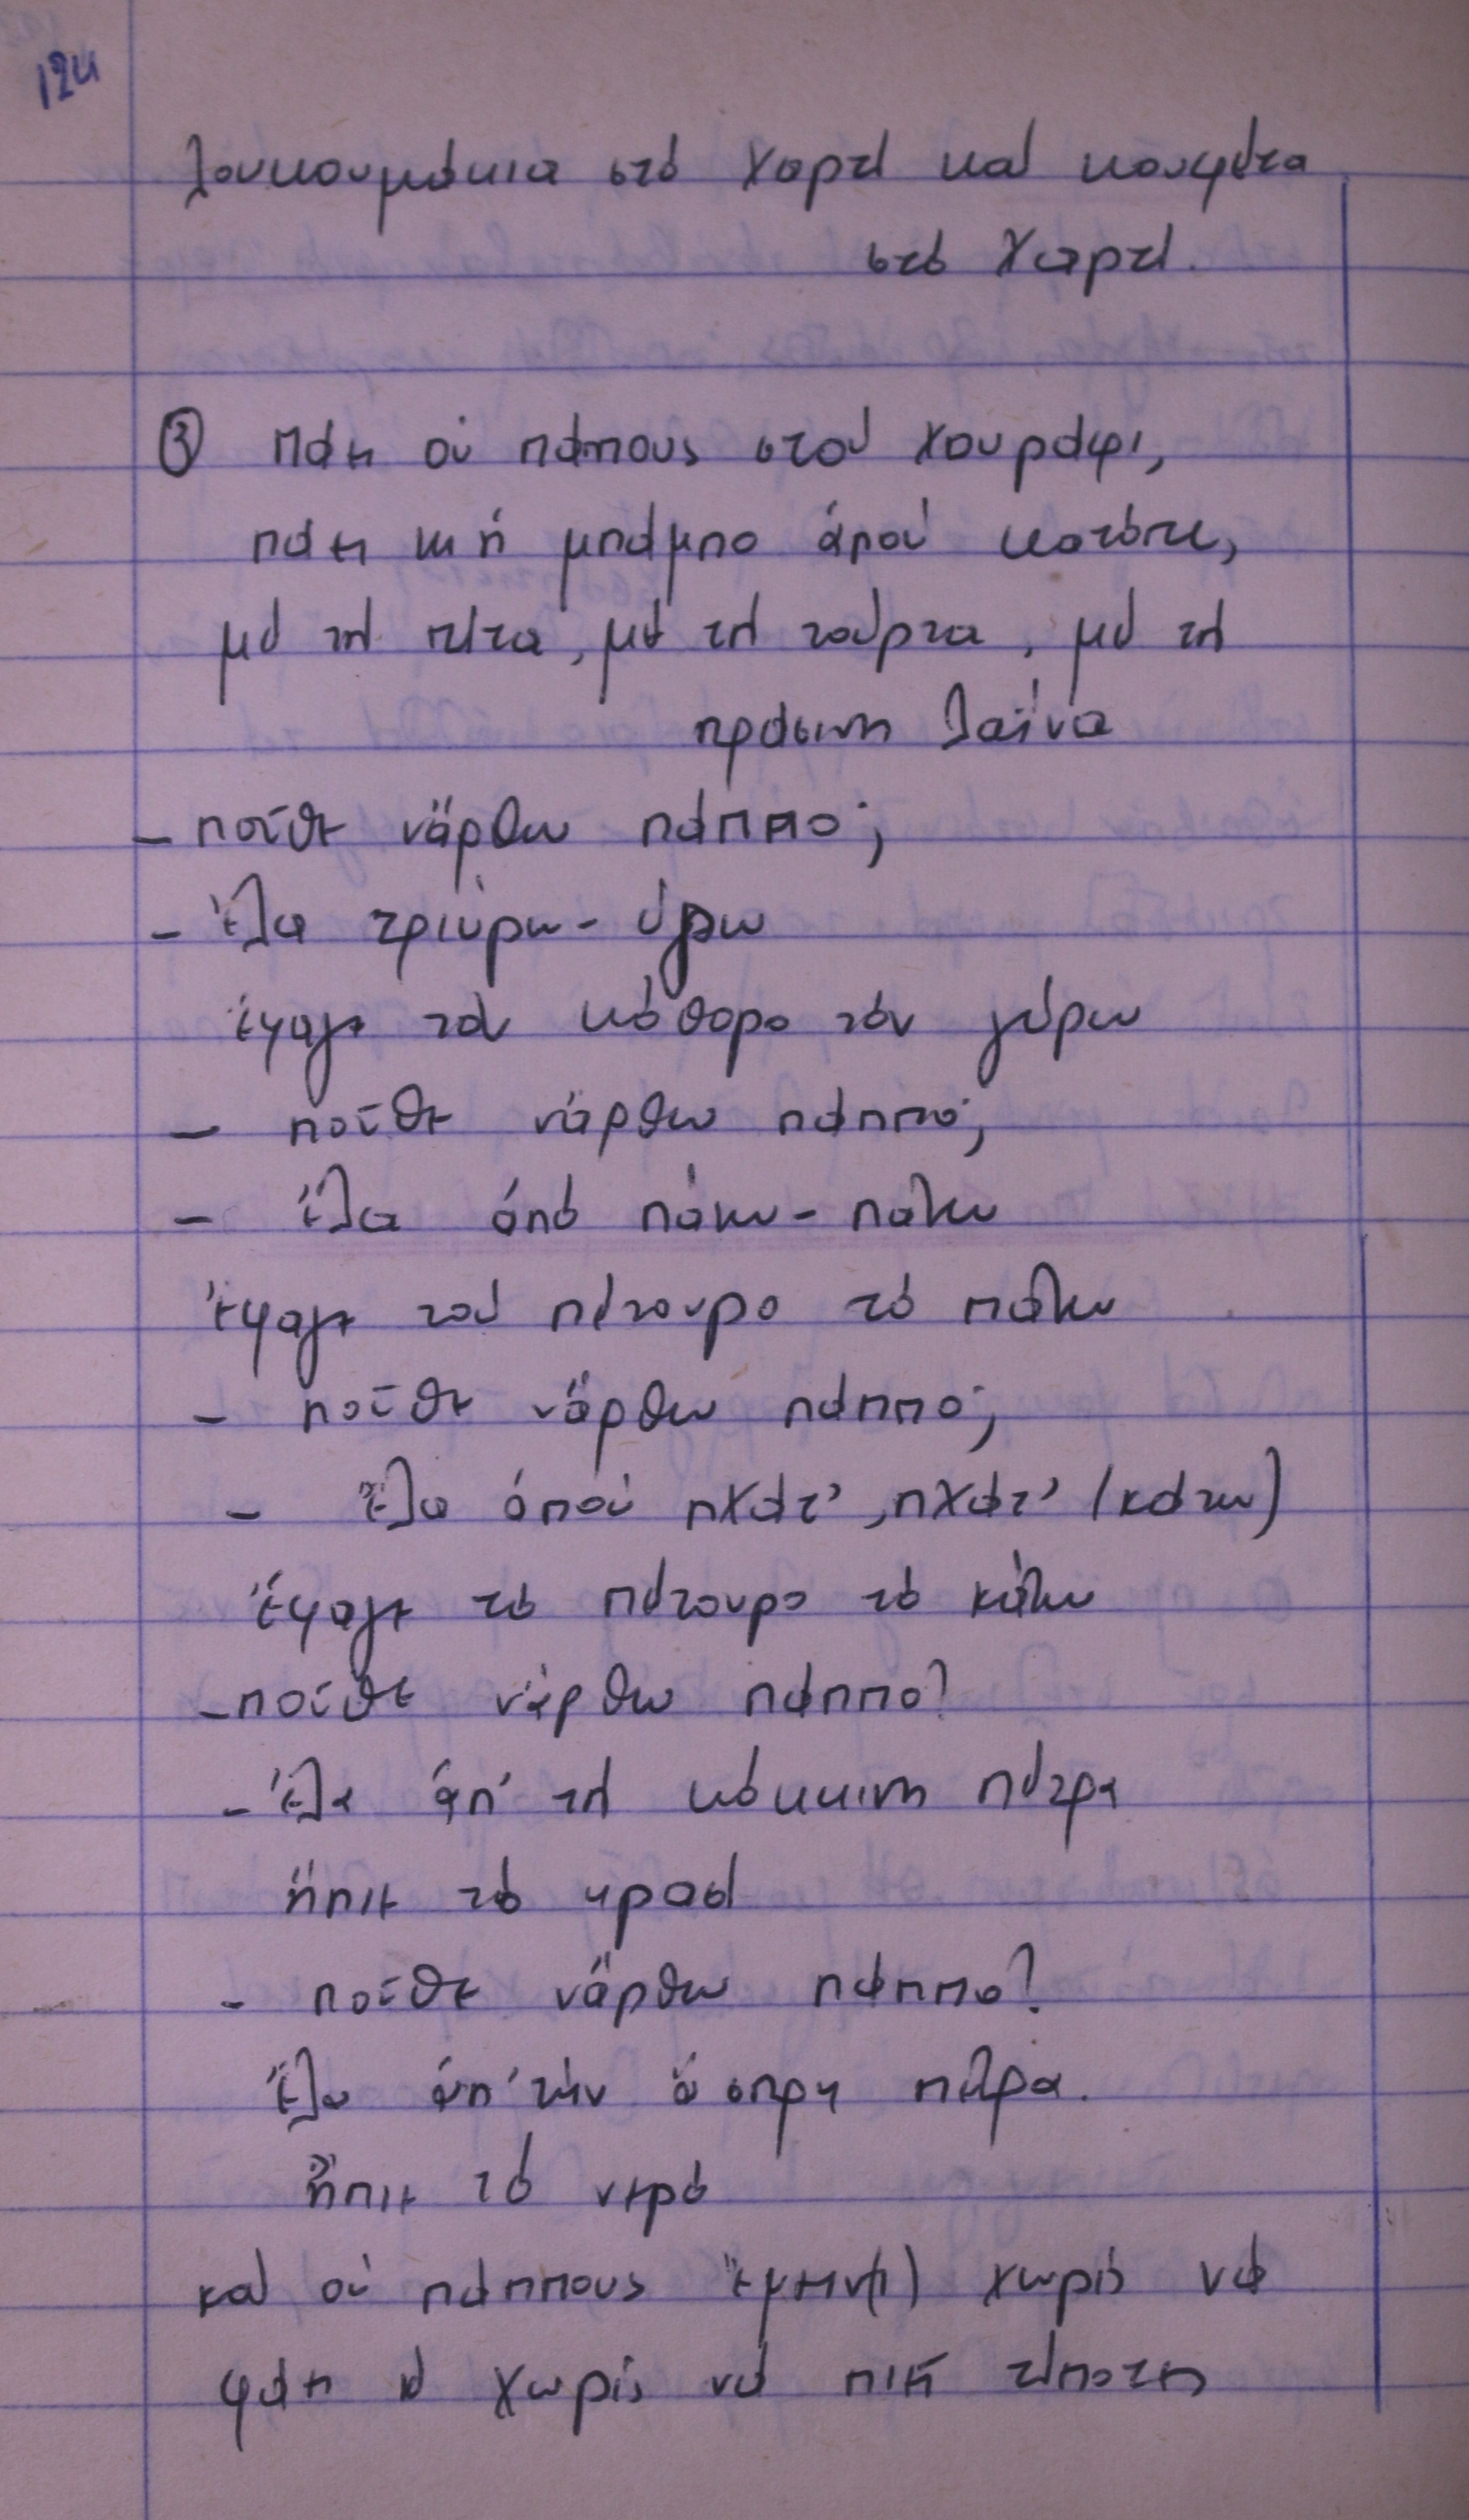 124
λουκουμάκια στό χαρτί καί κουφέτα
στό χαρτί.
③ πάει οὑ πάππους στού χουράφι,
πάει κι ἡ μπάμπο ἀπού κατόπι,
μέ τή πίτα, μέ τή τούρτα, μέ τή
πράσινη λαΐνα
- ποῦθε νἄρθω πάππο;
- Ἔλα τριγύρω - γύρω
ἔφαγε τόν κόθορο τόν γύρω
- ποῦθε νἄρθω πάππο;
- Ἔλα ἀπό πάνω - πάνω
Ἔφαγε τού πέτουρο τό πάνω
- ποῦθε νἄρθω πάππο;
- Ἔλα ἀπού πχάτ', πχάτ' (κάτω)
Ἔφαγε τό πέτουρο τό κάτω
- ποῦθε νἄρθω πάππο?
- Ἔλα ἀπ' τή κόκκινη πέτρα
ἤπιε τό κρασί
- ποῦθε νἄρθω πάππο?
Ἔλα ἀπ' τήν ἄσπρη πέτρα.
Ἤπιε τό νερό
καί οὑ πάππους ἔμειν(ι) χωρίς νά
φάει κί χωρίς νά πιεῖ τίποτις